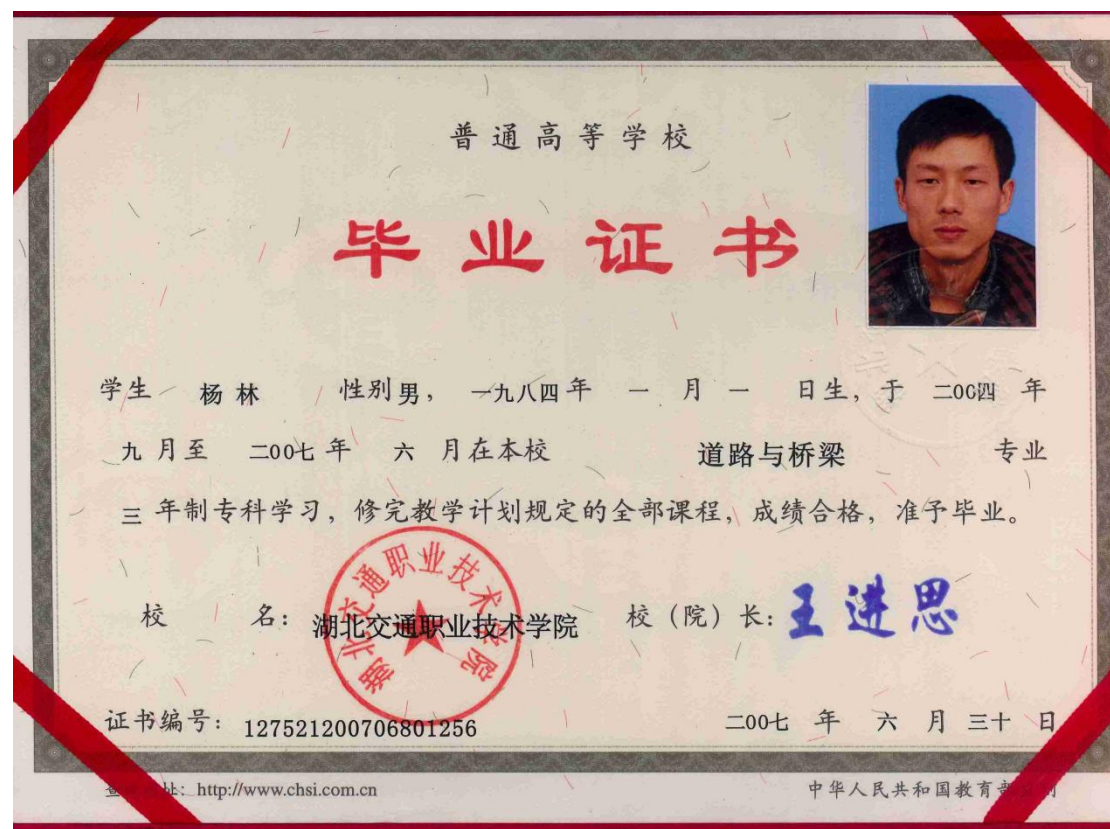 普通高等学校
毕业证书
学生 杨林 性别男， 一九八四年 一 月 一 日生，于 二00四 年
九 月至 二00七 年 六 月在本校 道路与桥梁 专业
三 年制专科学习，修完教学计划规定的全部课程，成绩合格，准予毕业。
湖北交通职业技术学院
校 名：湖北交通职业技术学院 校（院）长：王进思
证书编号：127521200706801256 二00七 年 六 月 三十 日
http://www.chsi.com.cn 中华人民共和国教育